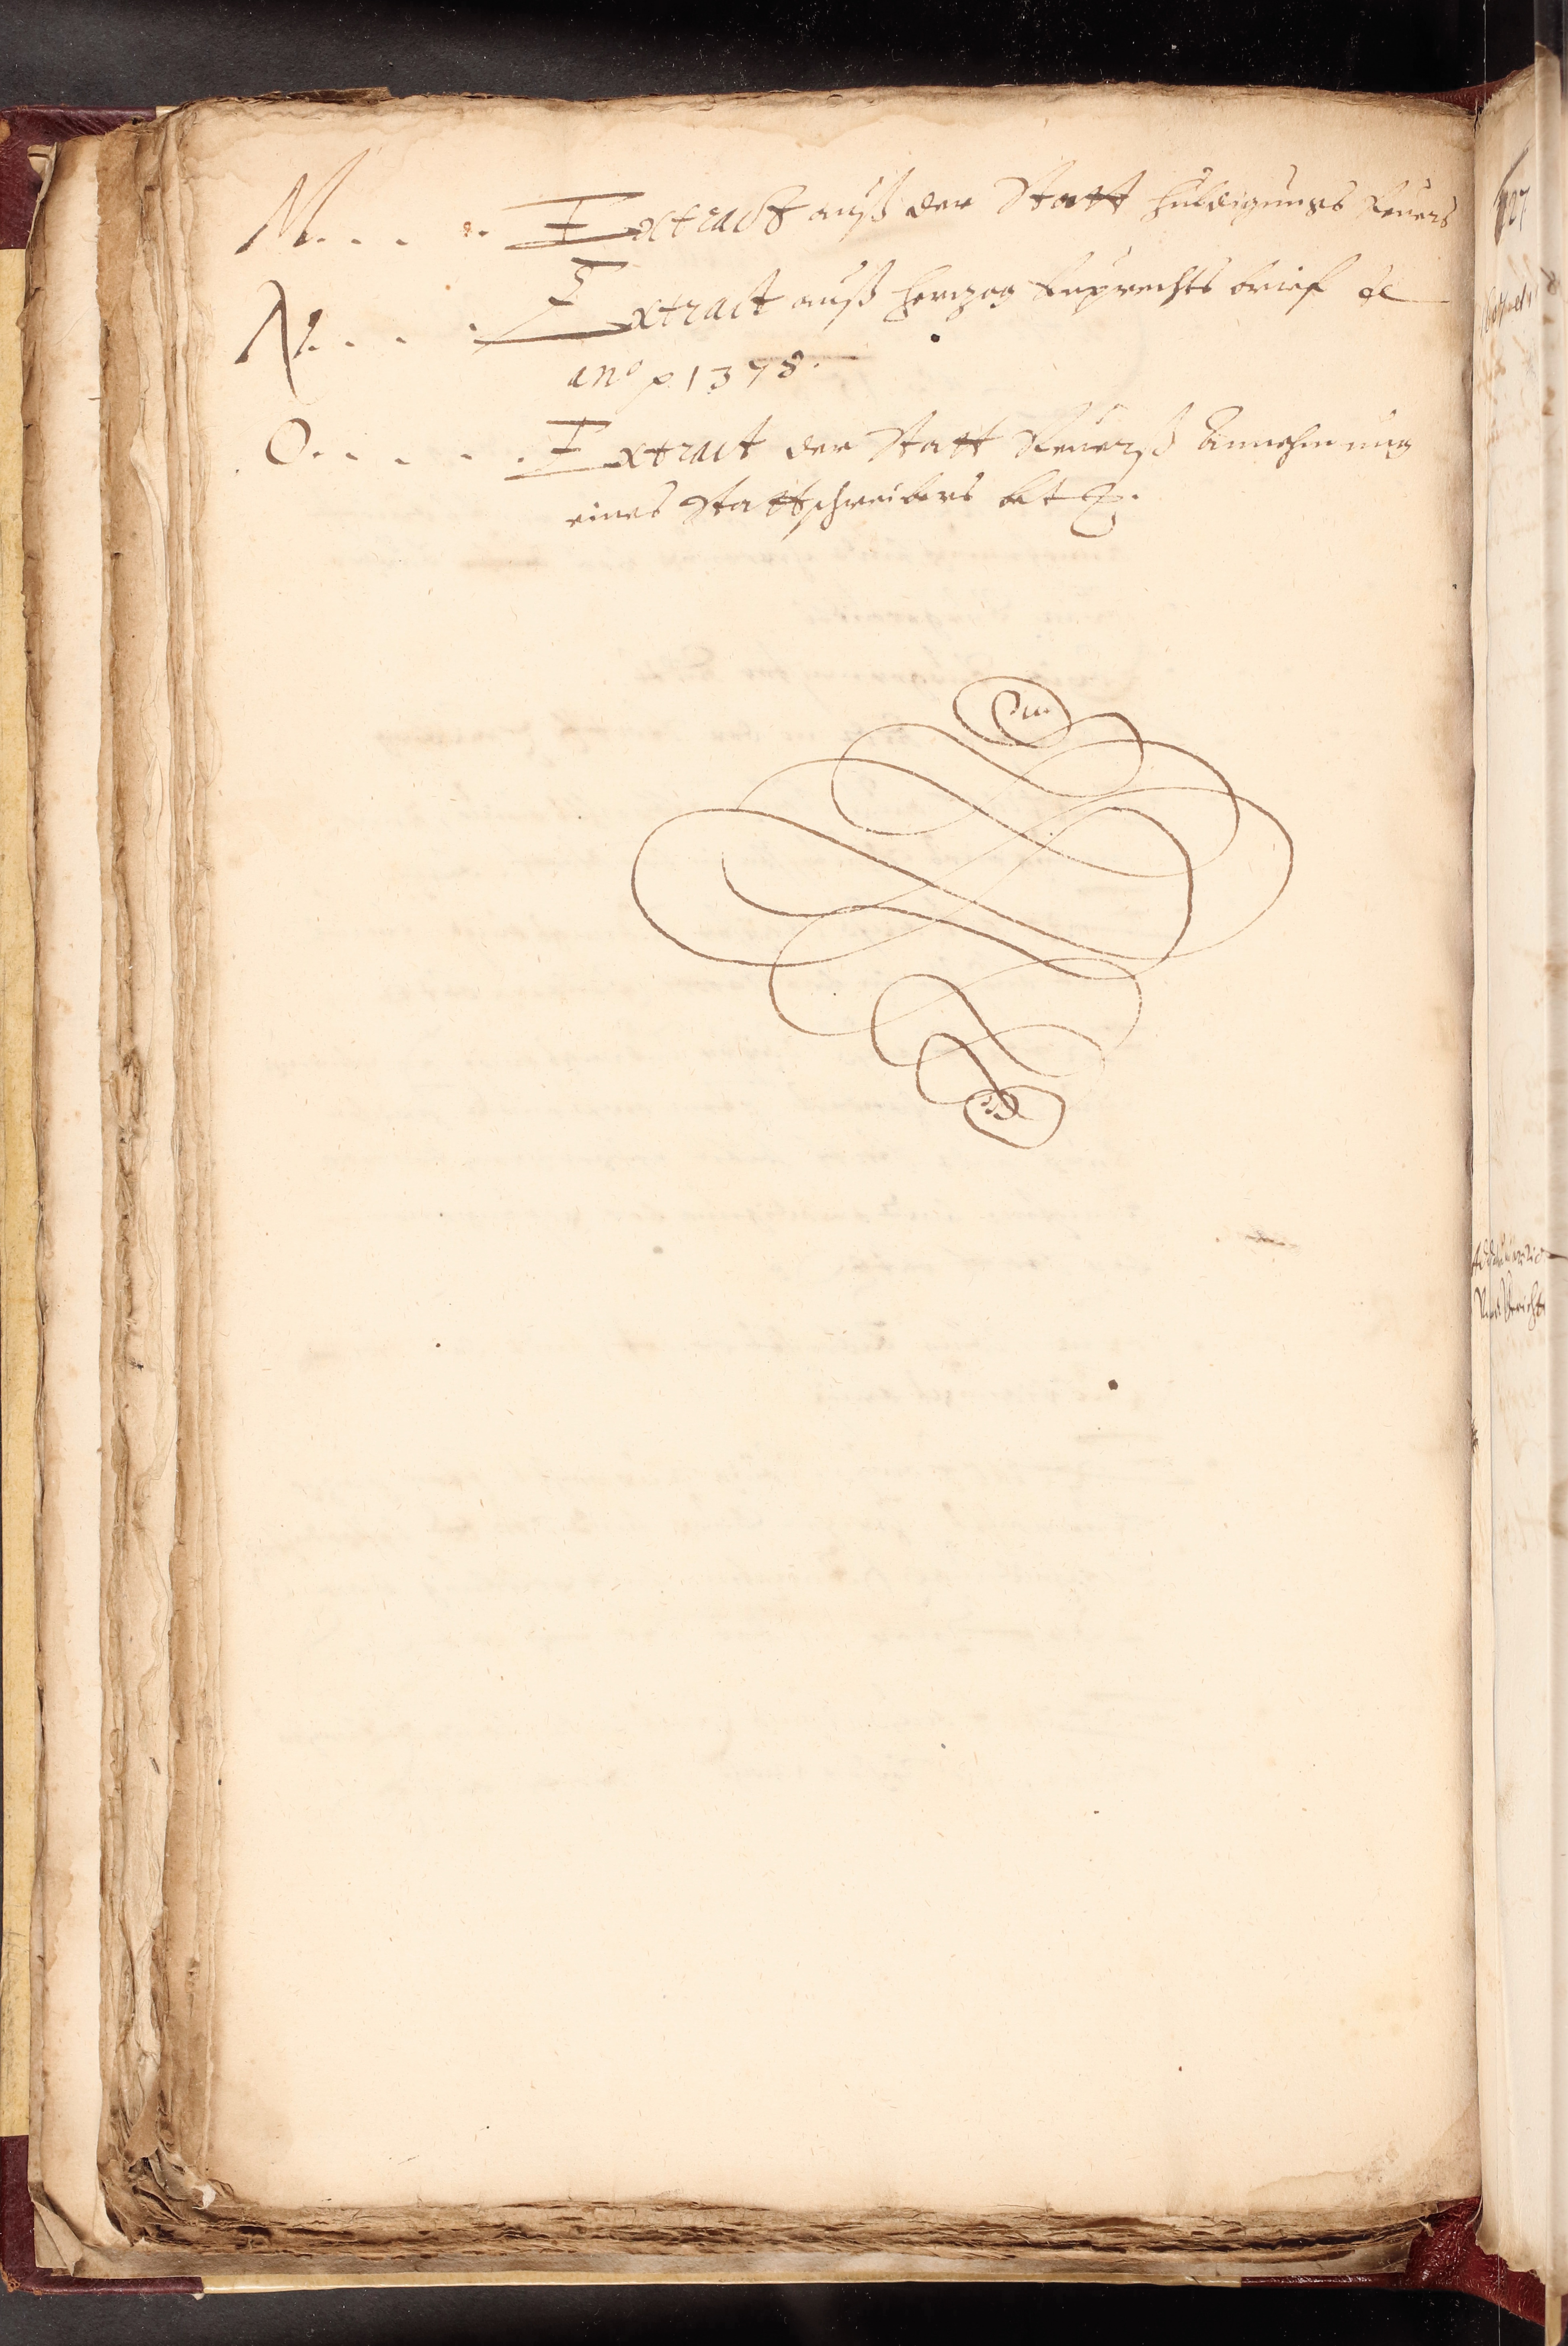 M. . . . . Extract auß der Statt huldigungs Reuers
N. . . . . Extract auß Hertzog Ruprechts brief de
an͠o p 1378.
O. . . . . . Extract der Statt Reuerß Annehmung
eines Stattschreibers bet